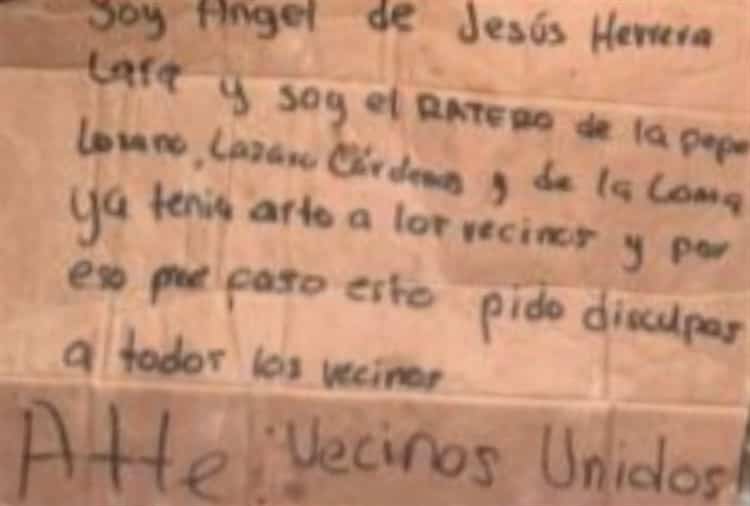 Soy Angel de Jesús Herrera
Lara y soy el RATERO de la pepe
Lozano, Lazaro Cárdenas y de la Loma
ya tenia arto a los vecinos y por
eso me paso esto pido disculpas
a todos los vecinos
Atte: Vecinos Unidos